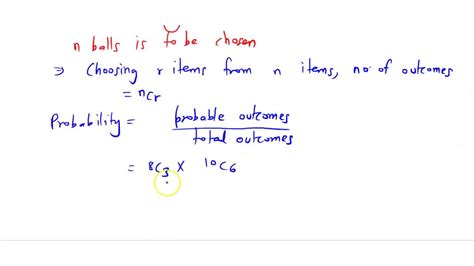 n balls is to be chosen
⇒ Choosing r items from n items, no. of outcomes
= nCr
Probability = probable outcomes
total outcomes
= 8C3 × 10C6